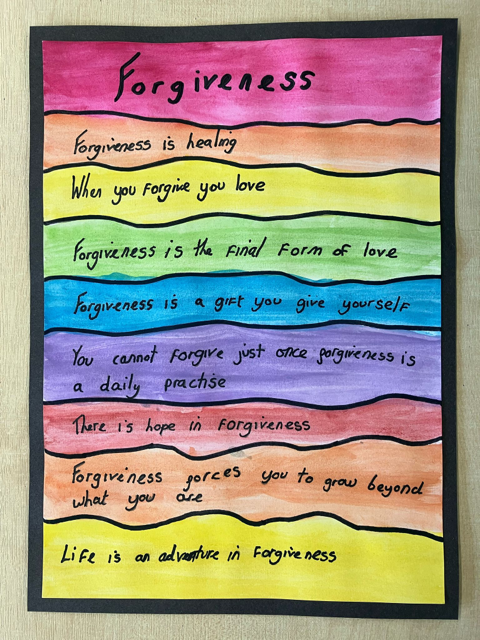 Forgiveness
Forgiveness is healing
When you Forgive you love
Forgiveness is the Final Form of love
Forgiveness is a gift you give yourself
You cannot Forgive just once forgiveness is
a daily practise
There is hope in Forgiveness
Forgiveness forces you to grow beyond
what you are
Life is an adventure in Forgiveness